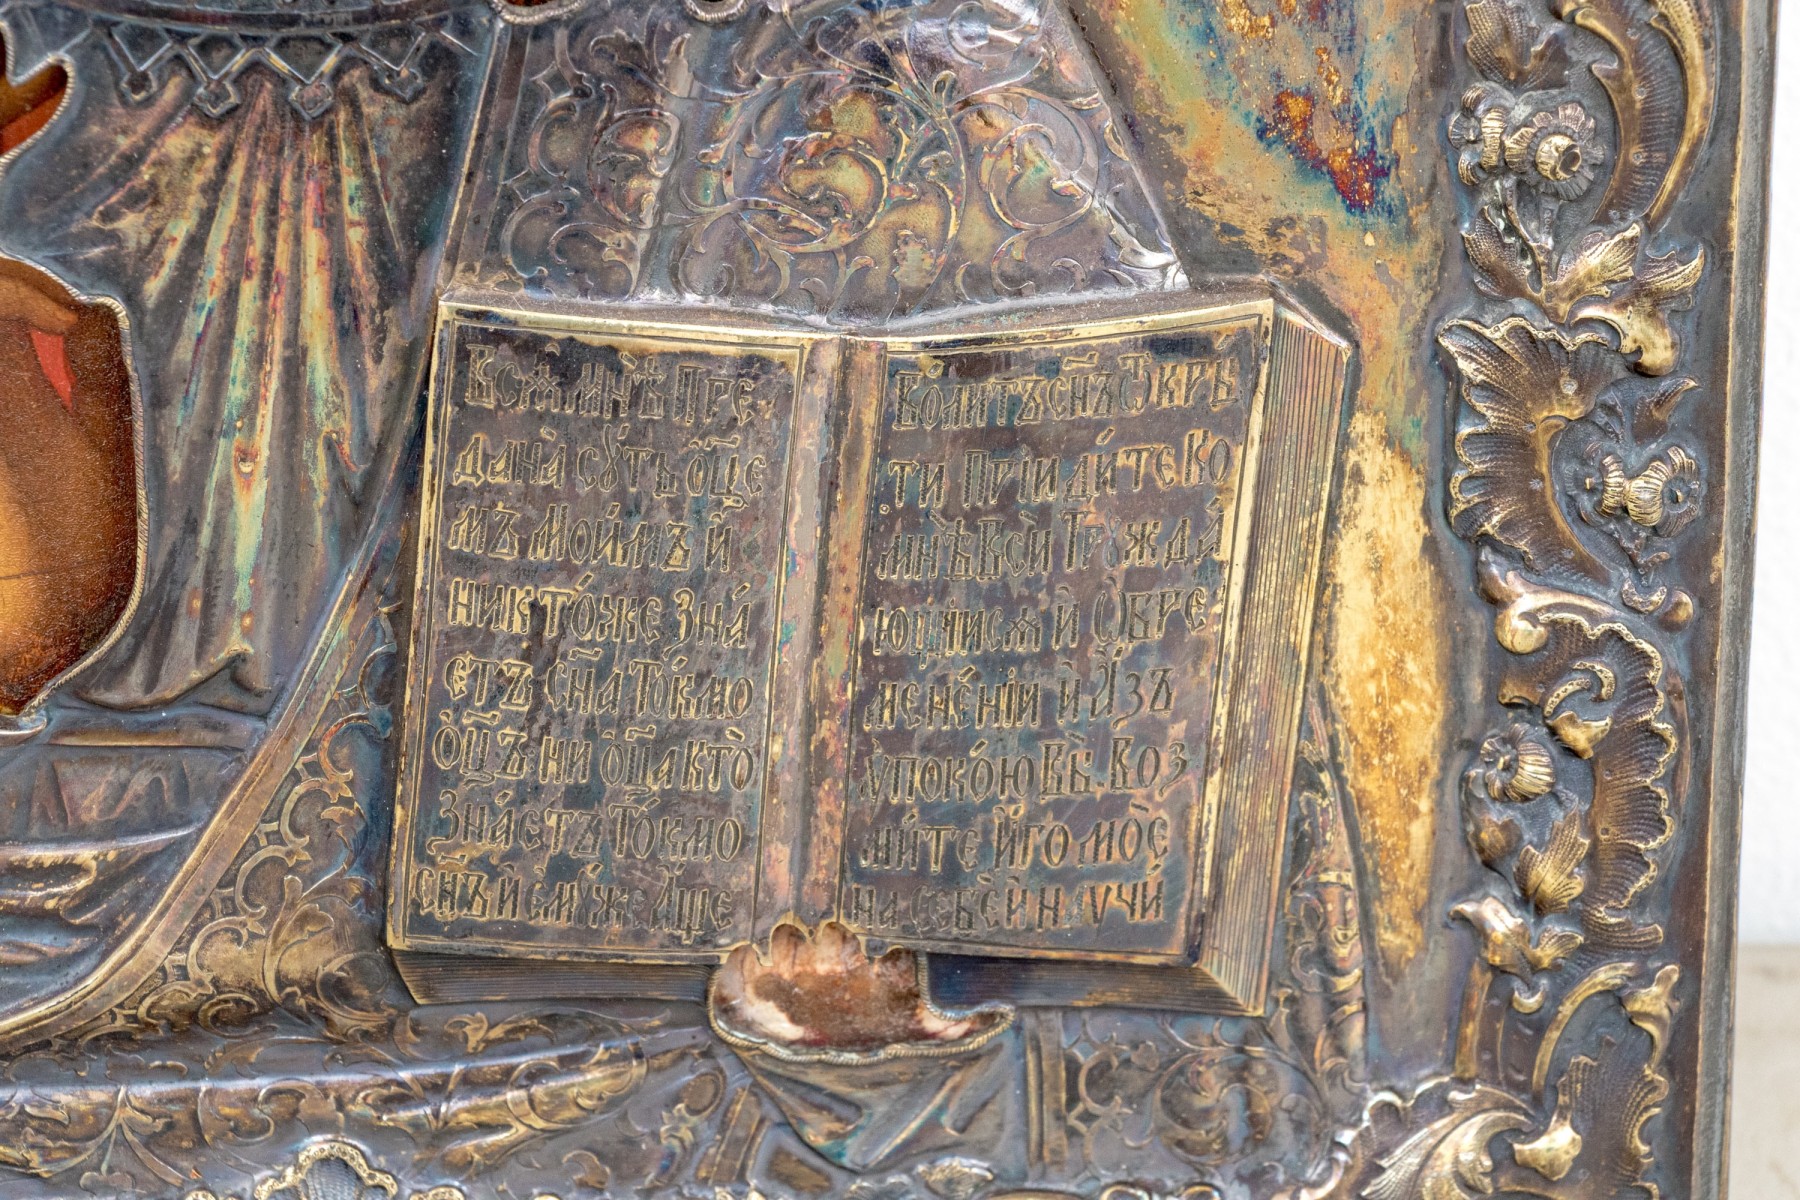 Всѧ́ Мнѣ̀ Пре
дана̀ сꙋ́ть о҆ц҃е
мъ Мои́мъ и҆
никто́же Зна́
етъ сн҃а То́кмо
о҆ц҃ъ ни о҆ц҃а кто̀
Зна́етъ То́кмо
сн҃ъ и҆ є҆мꙋ́же А҆ще
во́литъ сн҃ъ Ѿкры́
ти Прїиди́те ко
мнѣ̀ Всѝ Трꙋжда́
ющїисѧ и҆ Ѻ҆бре
мене́нїи и҆ А҆́зъ
ꙋ҆поко́ю Вы̀. Воз
ми́те И҆́го моѐ
на себѐ и҆ наꙋчи́